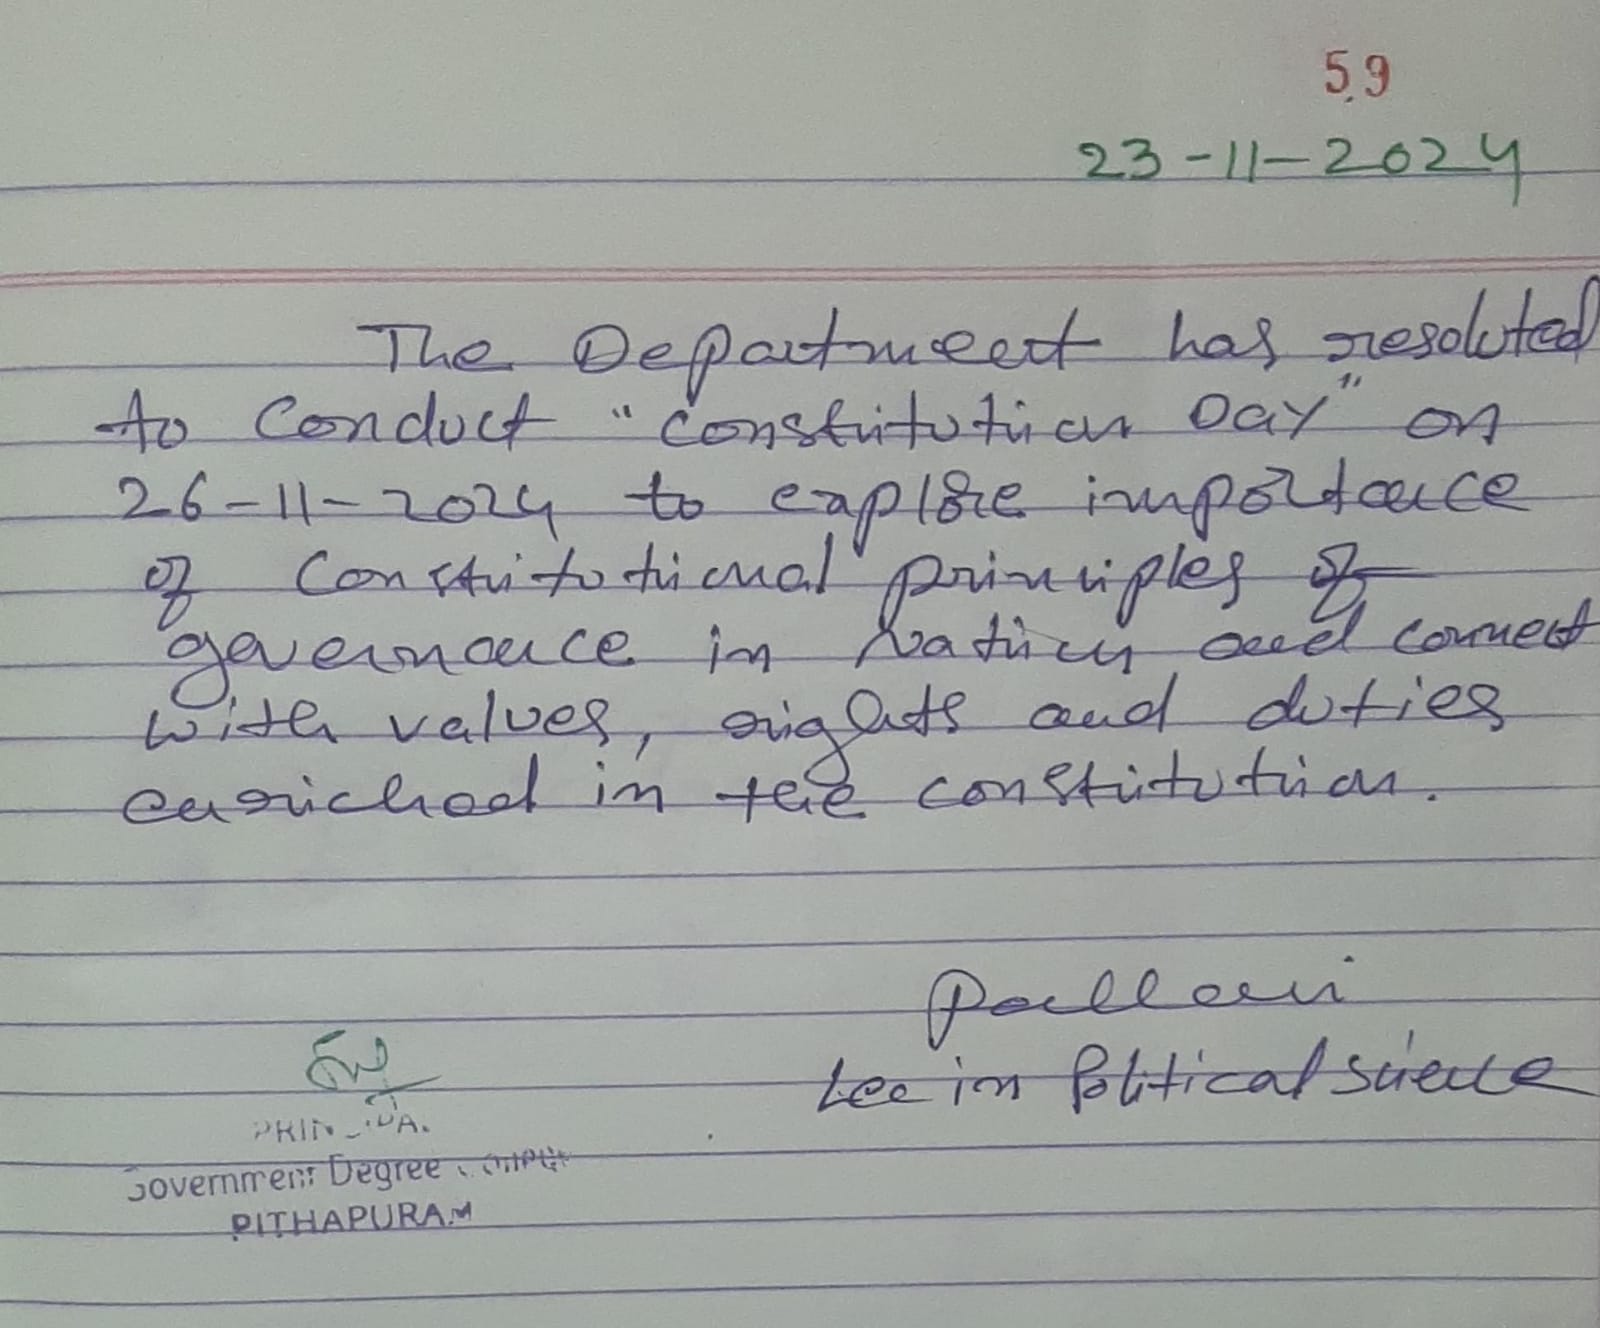 59
23-11-2024
The Department has resoluted
to conduct "Constitution Day" on
26-11-2024 to explore importance
of Constitutional principles of
governance in Nation and connect
with values, rights and duties
enriched in the constitution.
Pallavi
Lec in Political Science
PRINCIPAL
Government Degree College
PITHAPURAM